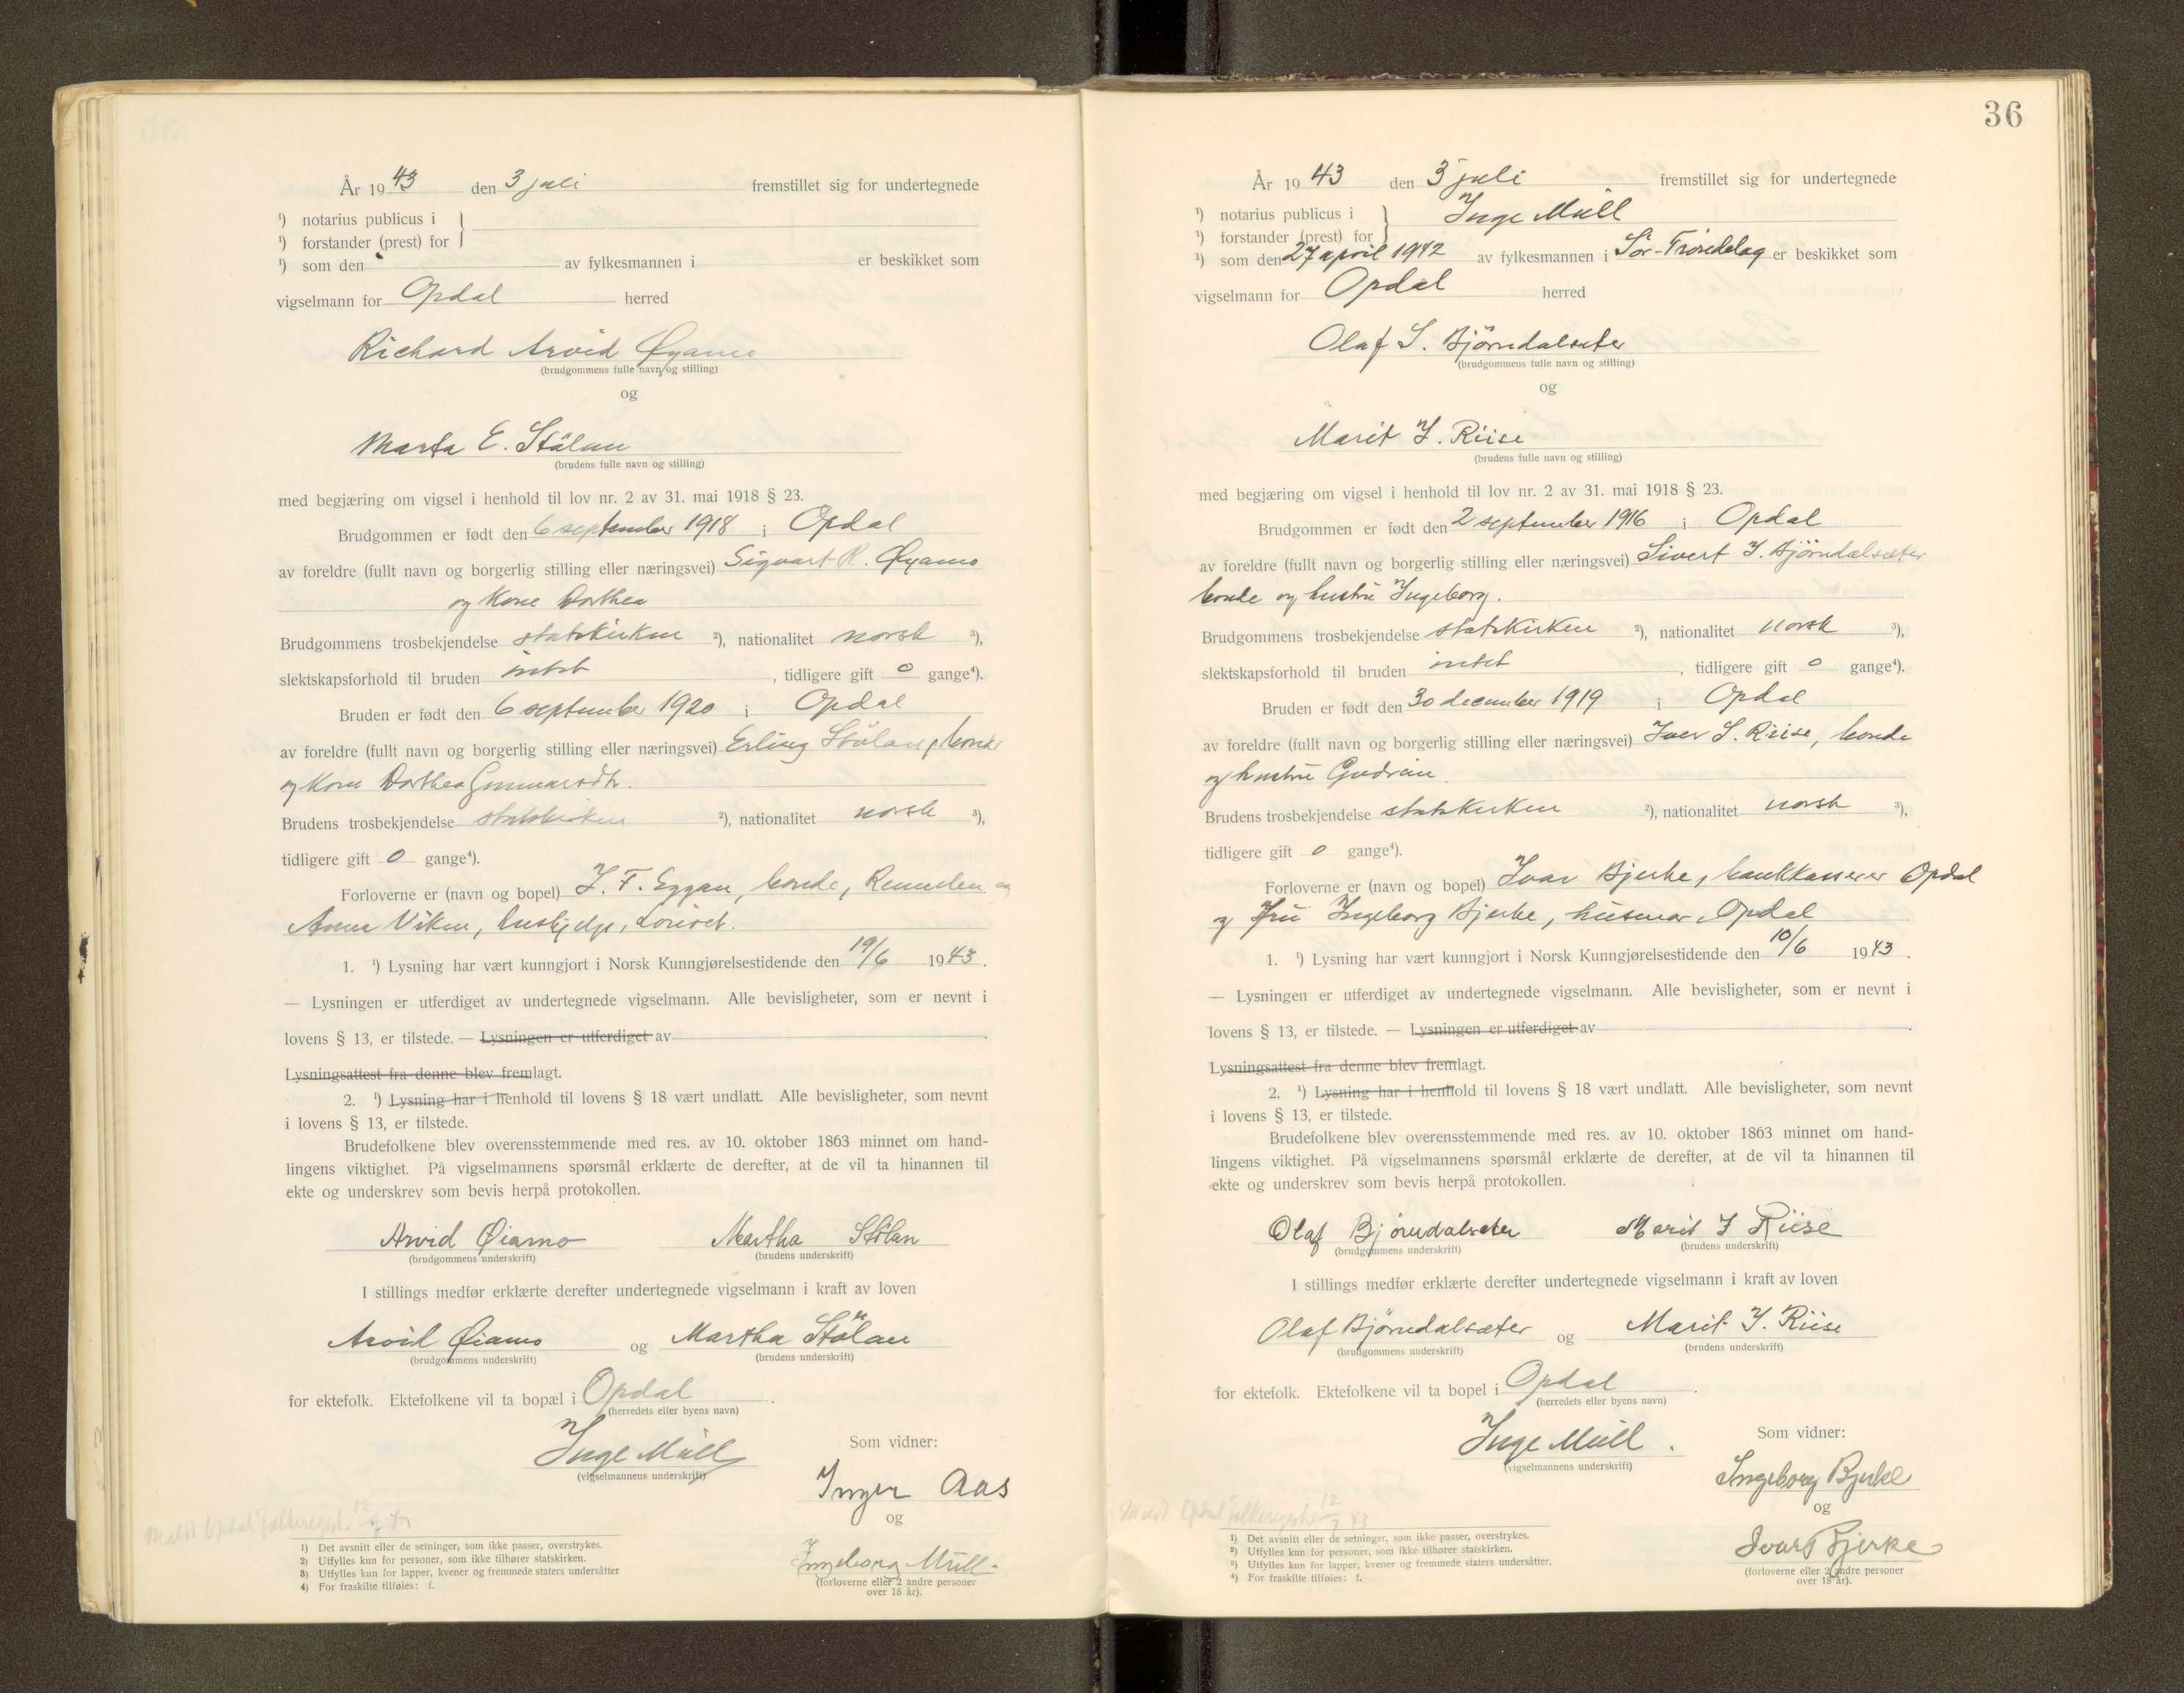 År 1943 den 3 juli fremstillet sig for undertegnede
¹) notarius publicus i
¹) forstander (prest) for
¹) som den av fylkesmannen i er beskikket som
vigselmann for Opdal herred
Richard Arvid Øyamo
(brudgommens fulle navn og stilling)
og
Marta E. Stölan
(brudens fulle navn og stilling)
med begjæring om vigsel i henhold til lov nr. 2 av 31. mai 1918 § 23.
Brudgommen er født den 6 september 1918 i Opdal
av foreldre (fullt navn og borgerlig stilling eller næringsvei) Sigvart R. Øyamo
og kone Dorthea
Brudgommens trosbekjendelse statskirken ²), nationalitet norsk ³),
slektskapsforhold til bruden intet, tidligere gift 0 gange⁴).
Bruden er født den 6 september 1920 i Opdal
av foreldre (fullt navn og borgerlig stilling eller næringsvei) Erling Stölan, bonde
og kone Dorthea Gunnarsdtr.
Brudens trosbekjendelse statskirken ²), nationalitet norsk ³),
tidligere gift 0 gange⁴).
Forloverne er (navn og bopel) J. F. Eggan, bonde, og
Anna Viken, hushjelp,
1. ¹) Lysning har vært kunngjort i Norsk Kunngjørelsestidende den 19/6 1943.
— Lysningen er utferdiget av undertegnede vigselmann. Alle bevisligheter, som er nevnt i
lovens § 13, er tilstede. — Lysningen er utferdiget av
Lysningsattest fra denne blev fremlagt.
2. ¹) Lysning har i henhold til lovens § 18 vært undlatt. Alle bevisligheter, som nevnt
i lovens § 13, er tilstede.
Brudefolkene blev overensstemmende med res. av 10. oktober 1863 minnet om hand-
lingens viktighet. På vigselmannens spørsmål erklærte de derefter, at de vil ta hinannen til
ekte og underskrev som bevis herpå protokollen.
Arvid Øiamo Martha Stölan
(brudgommens underskrift) (brudens underskrift)
I stillings medfør erklærte derefter undertegnede vigselmann i kraft av loven
Arvid Øiamo og Martha Stölan
(brudgommens underskrift) (brudens underskrift)
for ektefolk. Ektefolkene vil ta bopæl i Opdal.
(herredets eller byens navn)
Inge Müll
(vigselmannens underskrift)
Som vidner:
Inger Aas
og
Ingeborg Müll
(forloverne eller 2 andre personer
over 18 år).
Meldt Opdal Folkeregister 12/7 43
1) Det avsnitt eller de setninger, som ikke passer, overstrykes.
2) Utfylles kun for personer, som ikke tilhører statskirken.
3) Utfylles kun for lapper, kvener og fremmede staters undersåtter
4) For fraskilte tilføies: f.
36
År 1943 den 3 juli fremstillet sig for undertegnede
¹) notarius publicus i
Inge Müll
¹) forstander (prest) for
¹) som den 27 april 1942 av fylkesmannen i Sör-Tröndelag er beskikket som
vigselmann for Opdal herred
Olaf S. Björndalsæter
(brudgommens fulle navn og stilling)
og
Marit I. Riise
(brudens fulle navn og stilling)
med begjæring om vigsel i henhold til lov nr. 2 av 31. mai 1918 § 23.
Brudgommen er født den 2 september 1916 i Opdal
av foreldre (fullt navn og borgerlig stilling eller næringsvei) Sivert I. Björndalsæter
bonde og hustru Ingeborg.
Brudgommens trosbekjendelse statskirken ²), nationalitet norsk ³),
slektskapsforhold til bruden intet, tidligere gift 0 gange⁴).
Bruden er født den 30 december 1919 i Opdal
av foreldre (fullt navn og borgerlig stilling eller næringsvei) Iver S. Riise, bonde
og hustru Gudrun.
Brudens trosbekjendelse statskirken ²), nationalitet norsk ³),
tidligere gift 0 gange⁴).
Forloverne er (navn og bopel) Ivar Bjerke, bankkasserer Opdal
og fru Ingeborg Bjerke, husmor, Opdal
1. ¹) Lysning har vært kunngjort i Norsk Kunngjørelsestidende den 10/6 1943.
— Lysningen er utferdiget av undertegnede vigselmann. Alle bevisligheter, som er nevnt i
lovens § 13, er tilstede. — Lysningen er utferdiget av
Lysningsattest fra denne blev fremlagt.
2. ¹) Lysning har i henhold til lovens § 18 vært undlatt. Alle bevisligheter, som nevnt
i lovens § 13, er tilstede.
Brudefolkene blev overensstemmende med res. av 10. oktober 1863 minnet om hand-
lingens viktighet. På vigselmannens spørsmål erklærte de derefter, at de vil ta hinannen til
ekte og underskrev som bevis herpå protokollen.
Olaf Björndalsæter Marit I Riise
(brudgommens underskrift) (brudens underskrift)
I stillings medfør erklærte derefter undertegnede vigselmann i kraft av loven
Olaf Björndalsæter og Marit I. Riise
(brudgommens underskrift) (brudens underskrift)
for ektefolk. Ektefolkene vil ta bopel i Opdal.
(herredets eller byens navn)
Inge Müll.
(vigselmannens underskrift)
Som vidner:
Ingeborg Bjerke
og
Ivar Bjerke
(forloverne eller 2 andre personer
over 18 år).
Meldt Opdal Folkeregister 12/7 43
¹) Det avsnitt eller de setninger, som ikke passer, overstrykes.
²) Utfylles kun for personer, som ikke tilhører statskirken.
³) Utfylles kun for lapper, kvener og fremmede staters undersåtter.
⁴) For fraskilte tilføies: f.